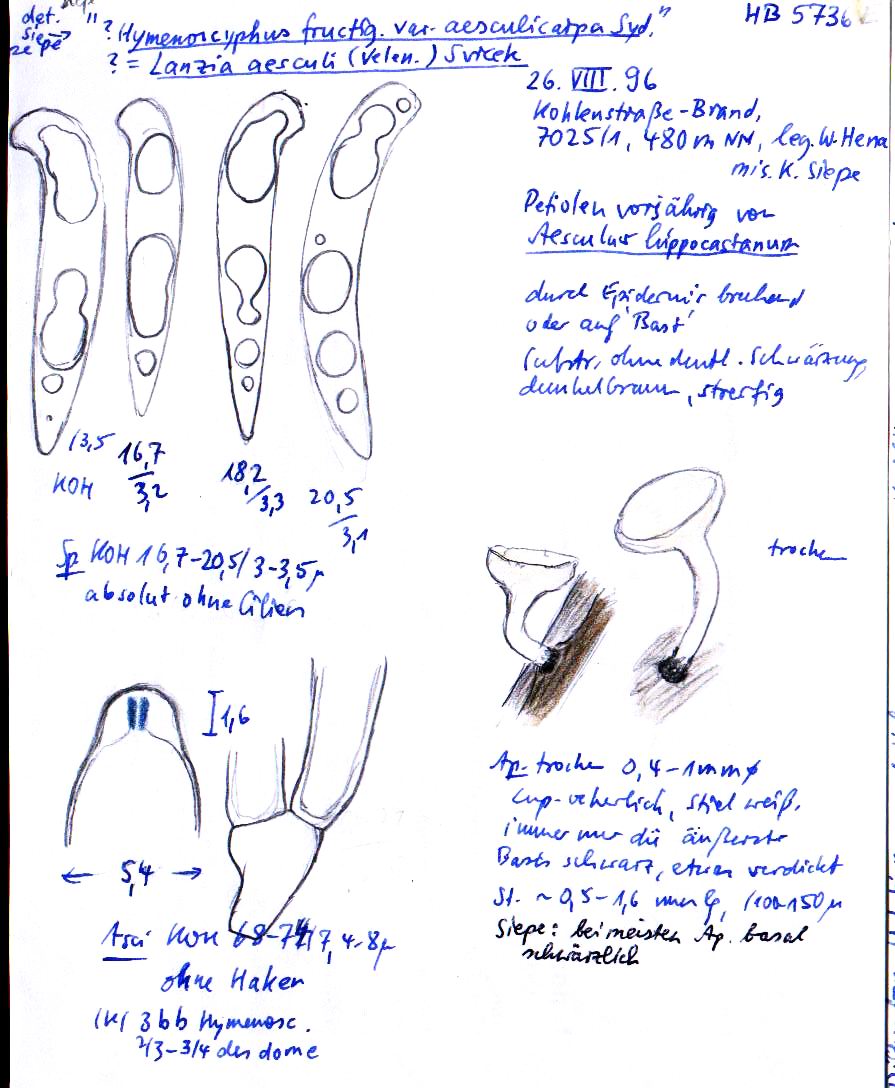 det.
Siepe
"? Hymenoscyphus fructig. var. aesculicarpa Syd."
? = Lanzia aesculi (Velen.) Svrcek
HB 5736
26. VIII. 96
Kohlenstraße-Brand,
7025/1, 480 m NN, leg. W. Hena
mis. K. Siepe
Petiolen vorjährig von
Aesculus hippocastanum
durch Epidermis brechend
oder auf 'Bast'
Substr. ohne deutl. Schwärzung,
dunkelbraun, streifig
13,5
KOH
16,7
3,2
18,2
/3,3
20,5
3,1
Sp KOH 16,7-20,5/3-3,5µ
absolut ohne Cilien
trocken
1,6
5,4
Asci KOH 68-74/7,4-8µ
ohne Haken
IKI 3 bb Hymenosc.
2/3-3/4 des dome
Ap. trocken 0,4-1mm ø
Stiel weiß,
immer nur die äußerste
Basis schwarz, etwas verdickt
St. ~ 0,5-1,6 mm lg, /100-150µ
Siepe: bei meisten Ap. basal
schwärzlich